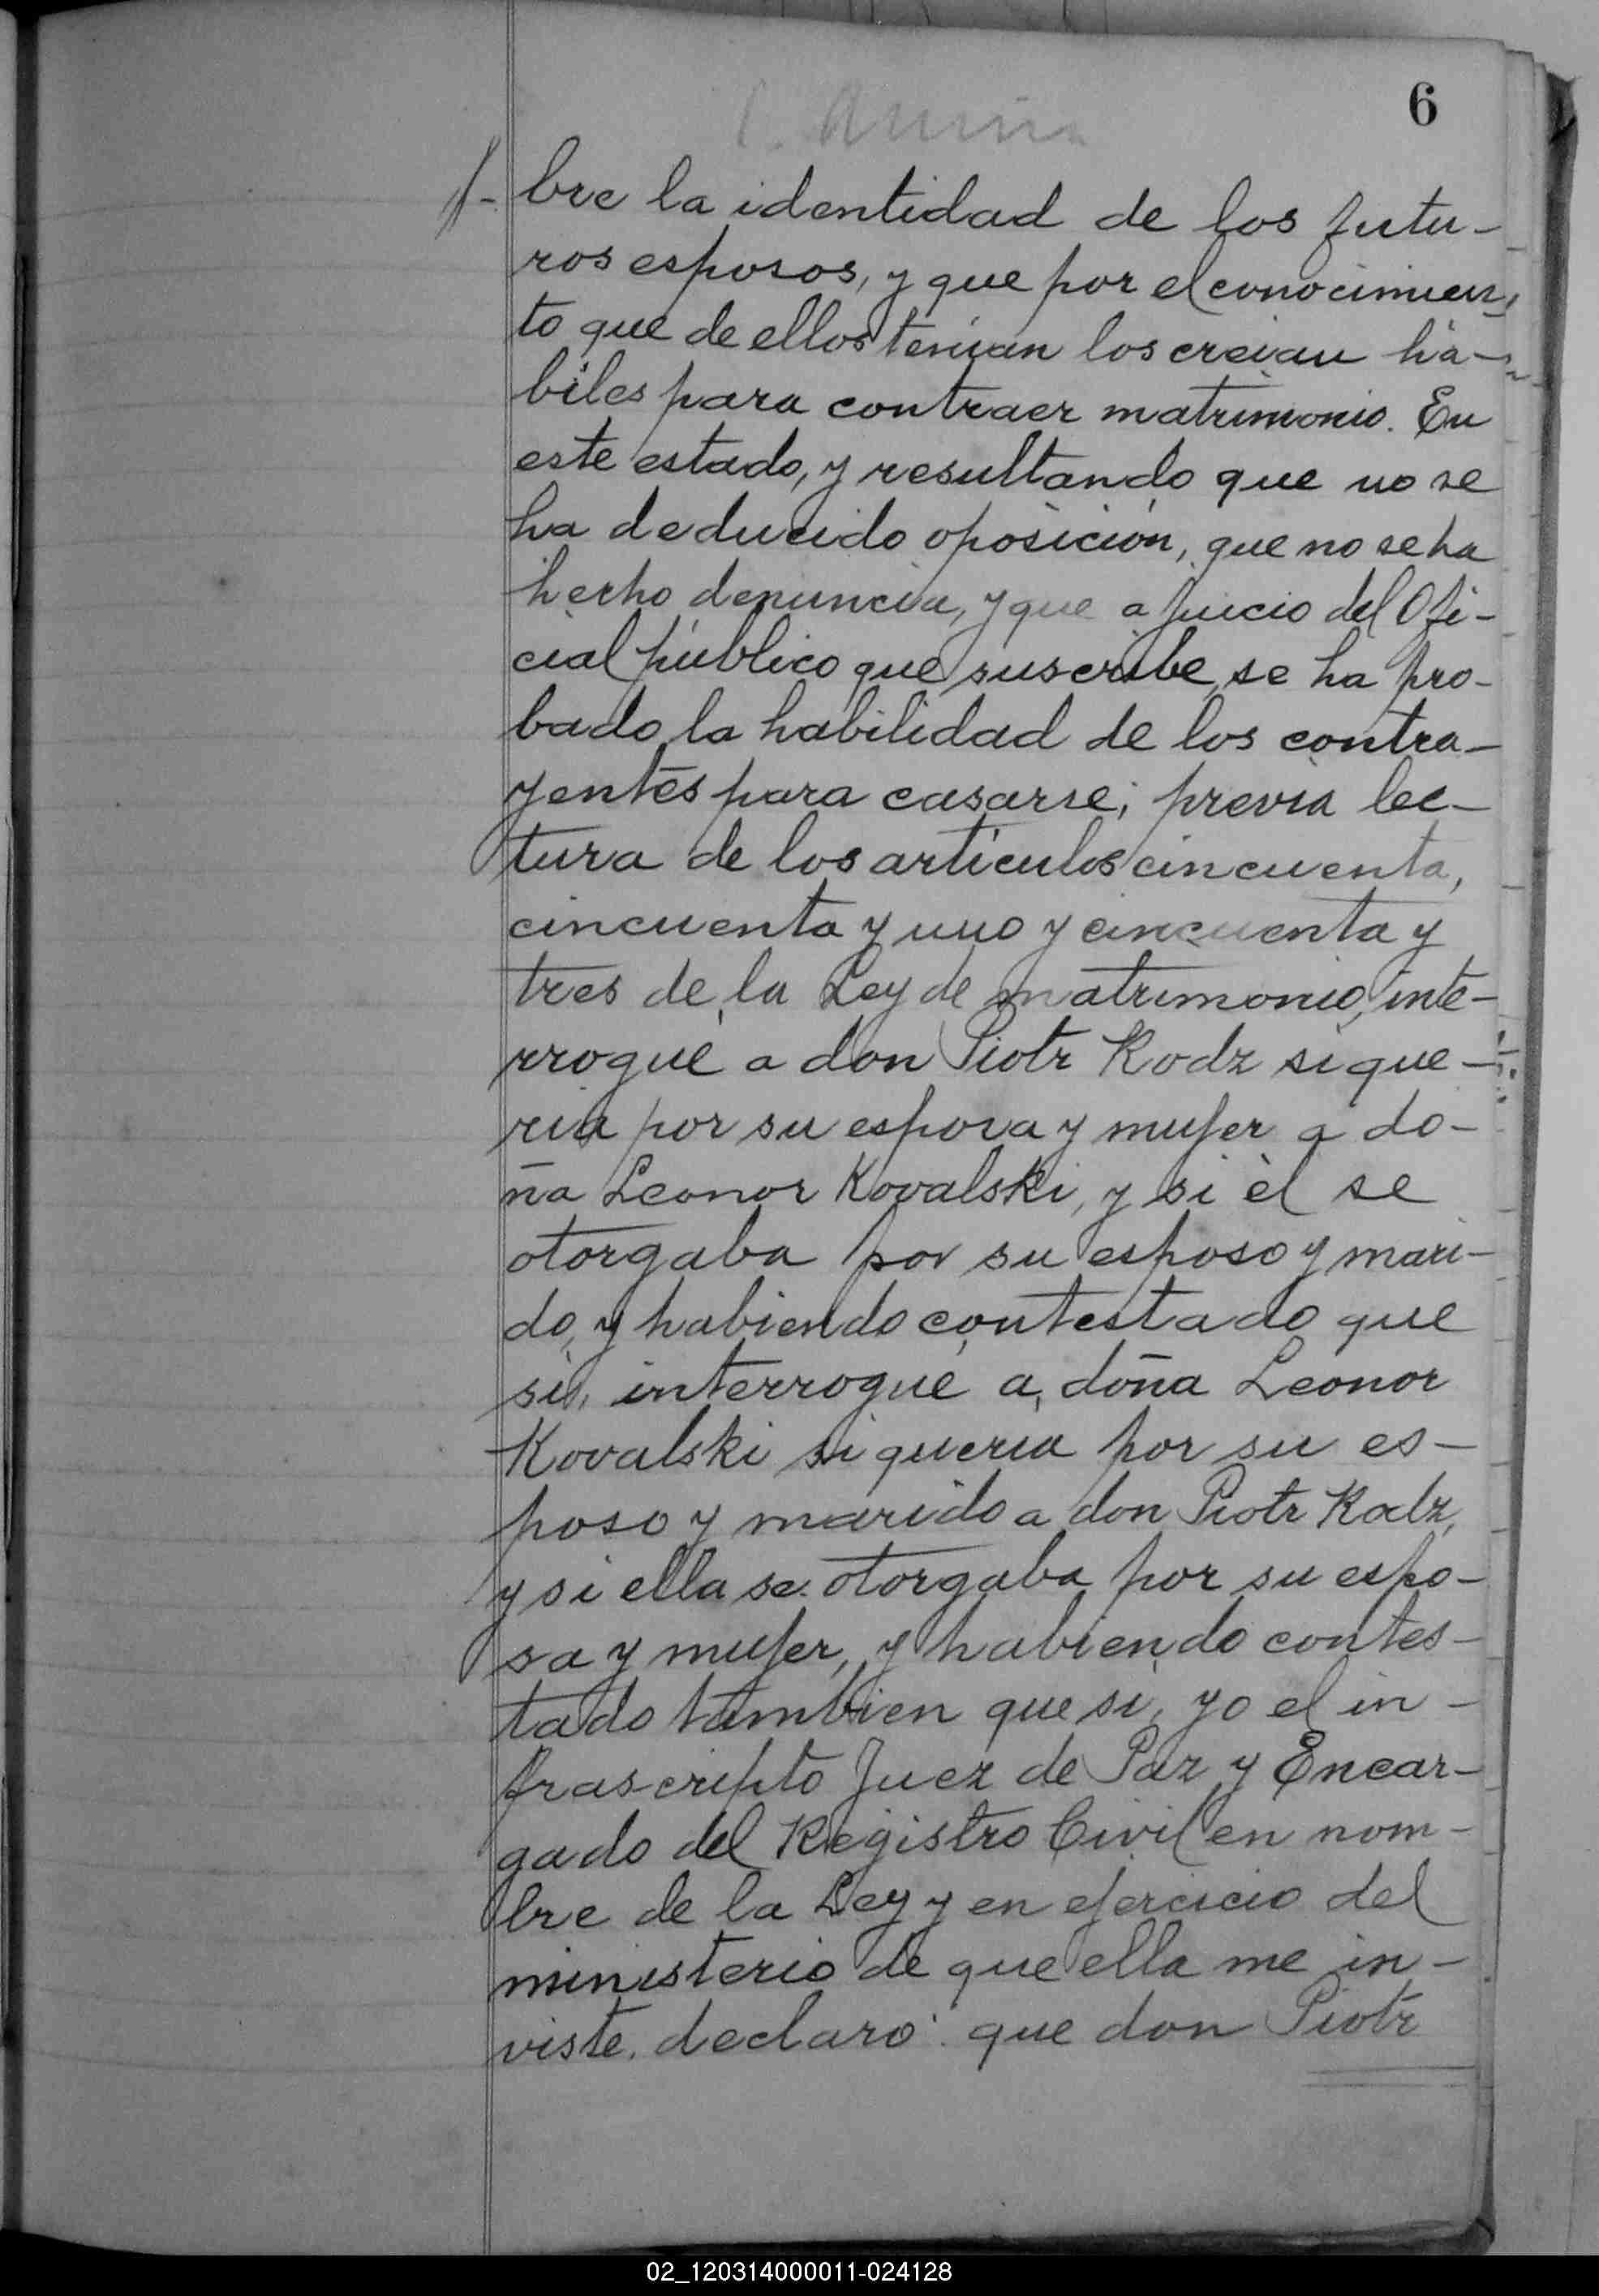 6
bre la identidad de los futu-
ros esposos, y que por el conocimien-
to que de ellos tenian los creian há-
biles para contraer matrimonio. En
este estado, y resultando que no se
ha deducido oposición, que no se ha
hecho denuncia, y que a juicio del Ofi-
cial público que suscribe, se ha pro-
bado la habilidad de los contra-
yentes para casarse; previa lec-
tura de los artículos cincuenta,
cincuenta y uno y cincuenta y
tres de la Ley de matrimonio, inte-
rrogué a don Piotr Kodz si que-
ria por su esposa y mujer a do-
ña Leonor Kovalski, y si él se
otorgaba por su esposo y mari-
do, y habiendo contestado que
si, interrogué a doña Leonor
Kovalski si queria por su es-
poso y marido a don Piotr Kodz,
y si ella se otorgaba por su espo-
sa y mujer, y habiendo contes-
tado tambien que si, yo el in-
frascripto Juez de Paz y Encar-
gado del Registro Civil en nom-
bre de la Ley y en ejercicio del
ministerio de que ella me in-
viste, declaro: que don Piotr
02_120314000011-024128